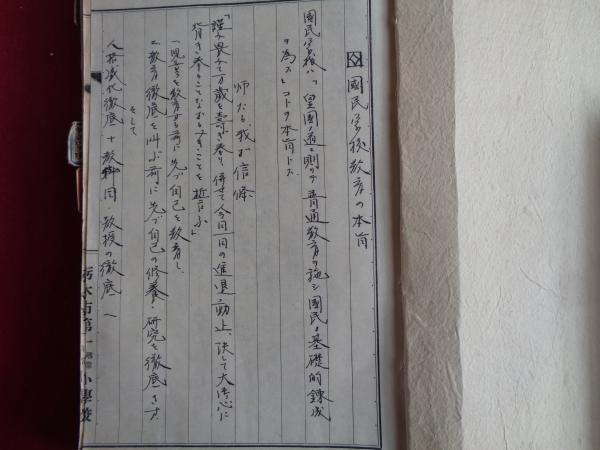 国民学校教育の本旨
国民学校ハ「皇国ノ道ニ則リテ普通教育ヲ施シ国民ノ基礎的錬成
ヲ為ス」コトヲ本旨トス
師たる我が信條
「謹み畏みて万歳を壽ぎ奉り、併せて今日の進退動止、決して大御心に
背き奉ることなかるべきことを誓ふ」
「児童を教育する前に先づ自己を教育し、
教育徹底を叫ぶ前に先づ自己の修養・研究を徹底さす
そして
人格感化徹底 + 教科目・教授の徹底 へ
栃木市第一 小學校